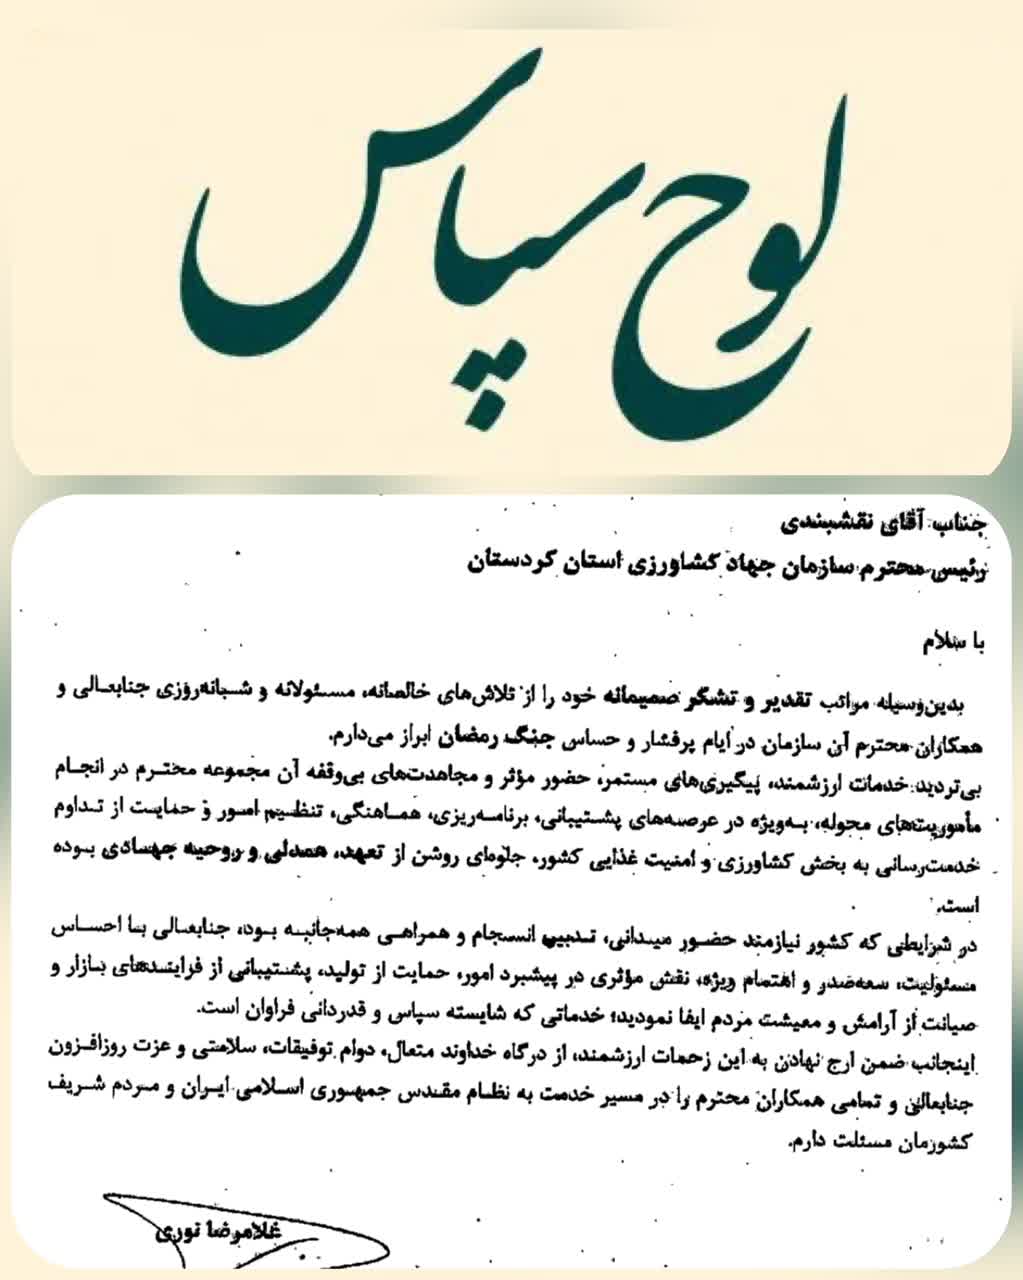 لوح سپاس
جناب آقای نقشبندی
رئیس محترم سازمان جهاد کشاورزی استان کردستان
با سلام
بدین‌وسیله مراتب تقدیر و تشکر صمیمانه خود را از تلاش‌های خالصانه، مسئولانه و شبانه‌روزی جنابعالی و
همکاران محترم آن سازمان در ایام پرفشار و حساس جنگ رمضان ابراز می‌دارم.
بی‌تردید خدمات ارزشمند، پیگیری‌های مستمر، حضور مؤثر و مجاهدت‌های بی‌وقفه آن مجموعه محترم در انجام
مأموریت‌های محوله، به‌ویژه در عرصه‌های پشتیبانی، برنامه‌ریزی، هماهنگی، تنظیم امور و حمایت از تداوم
خدمت‌رسانی به بخش کشاورزی و امنیت غذایی کشور، جلوه‌ای روشن از تعهد، همدلی و روحیه جهادی بوده
است.
در شرایطی که کشور نیازمند حضور میدانی، تدبیر، انسجام و همراهی همه‌جانبه بود، جنابعالی با احساس
مسئولیت، سعه‌صدر و اهتمام ویژه، نقش مؤثری در پیشبرد امور، حمایت از تولید، پشتیبانی از فرایندهای بازار و
صیانت از آرامش و معیشت مردم ایفا نمودید؛ خدماتی که شایسته سپاس و قدردانی فراوان است.
اینجانب ضمن ارج نهادن به این زحمات ارزشمند، از درگاه خداوند متعال، دوام توفیقات، سلامتی و عزت روزافزون
جنابعالی و تمامی همکاران محترم را در مسیر خدمت به نظام مقدس جمهوری اسلامی ایران و مردم شریف
کشورمان مسئلت دارم.
غلامرضا نوری